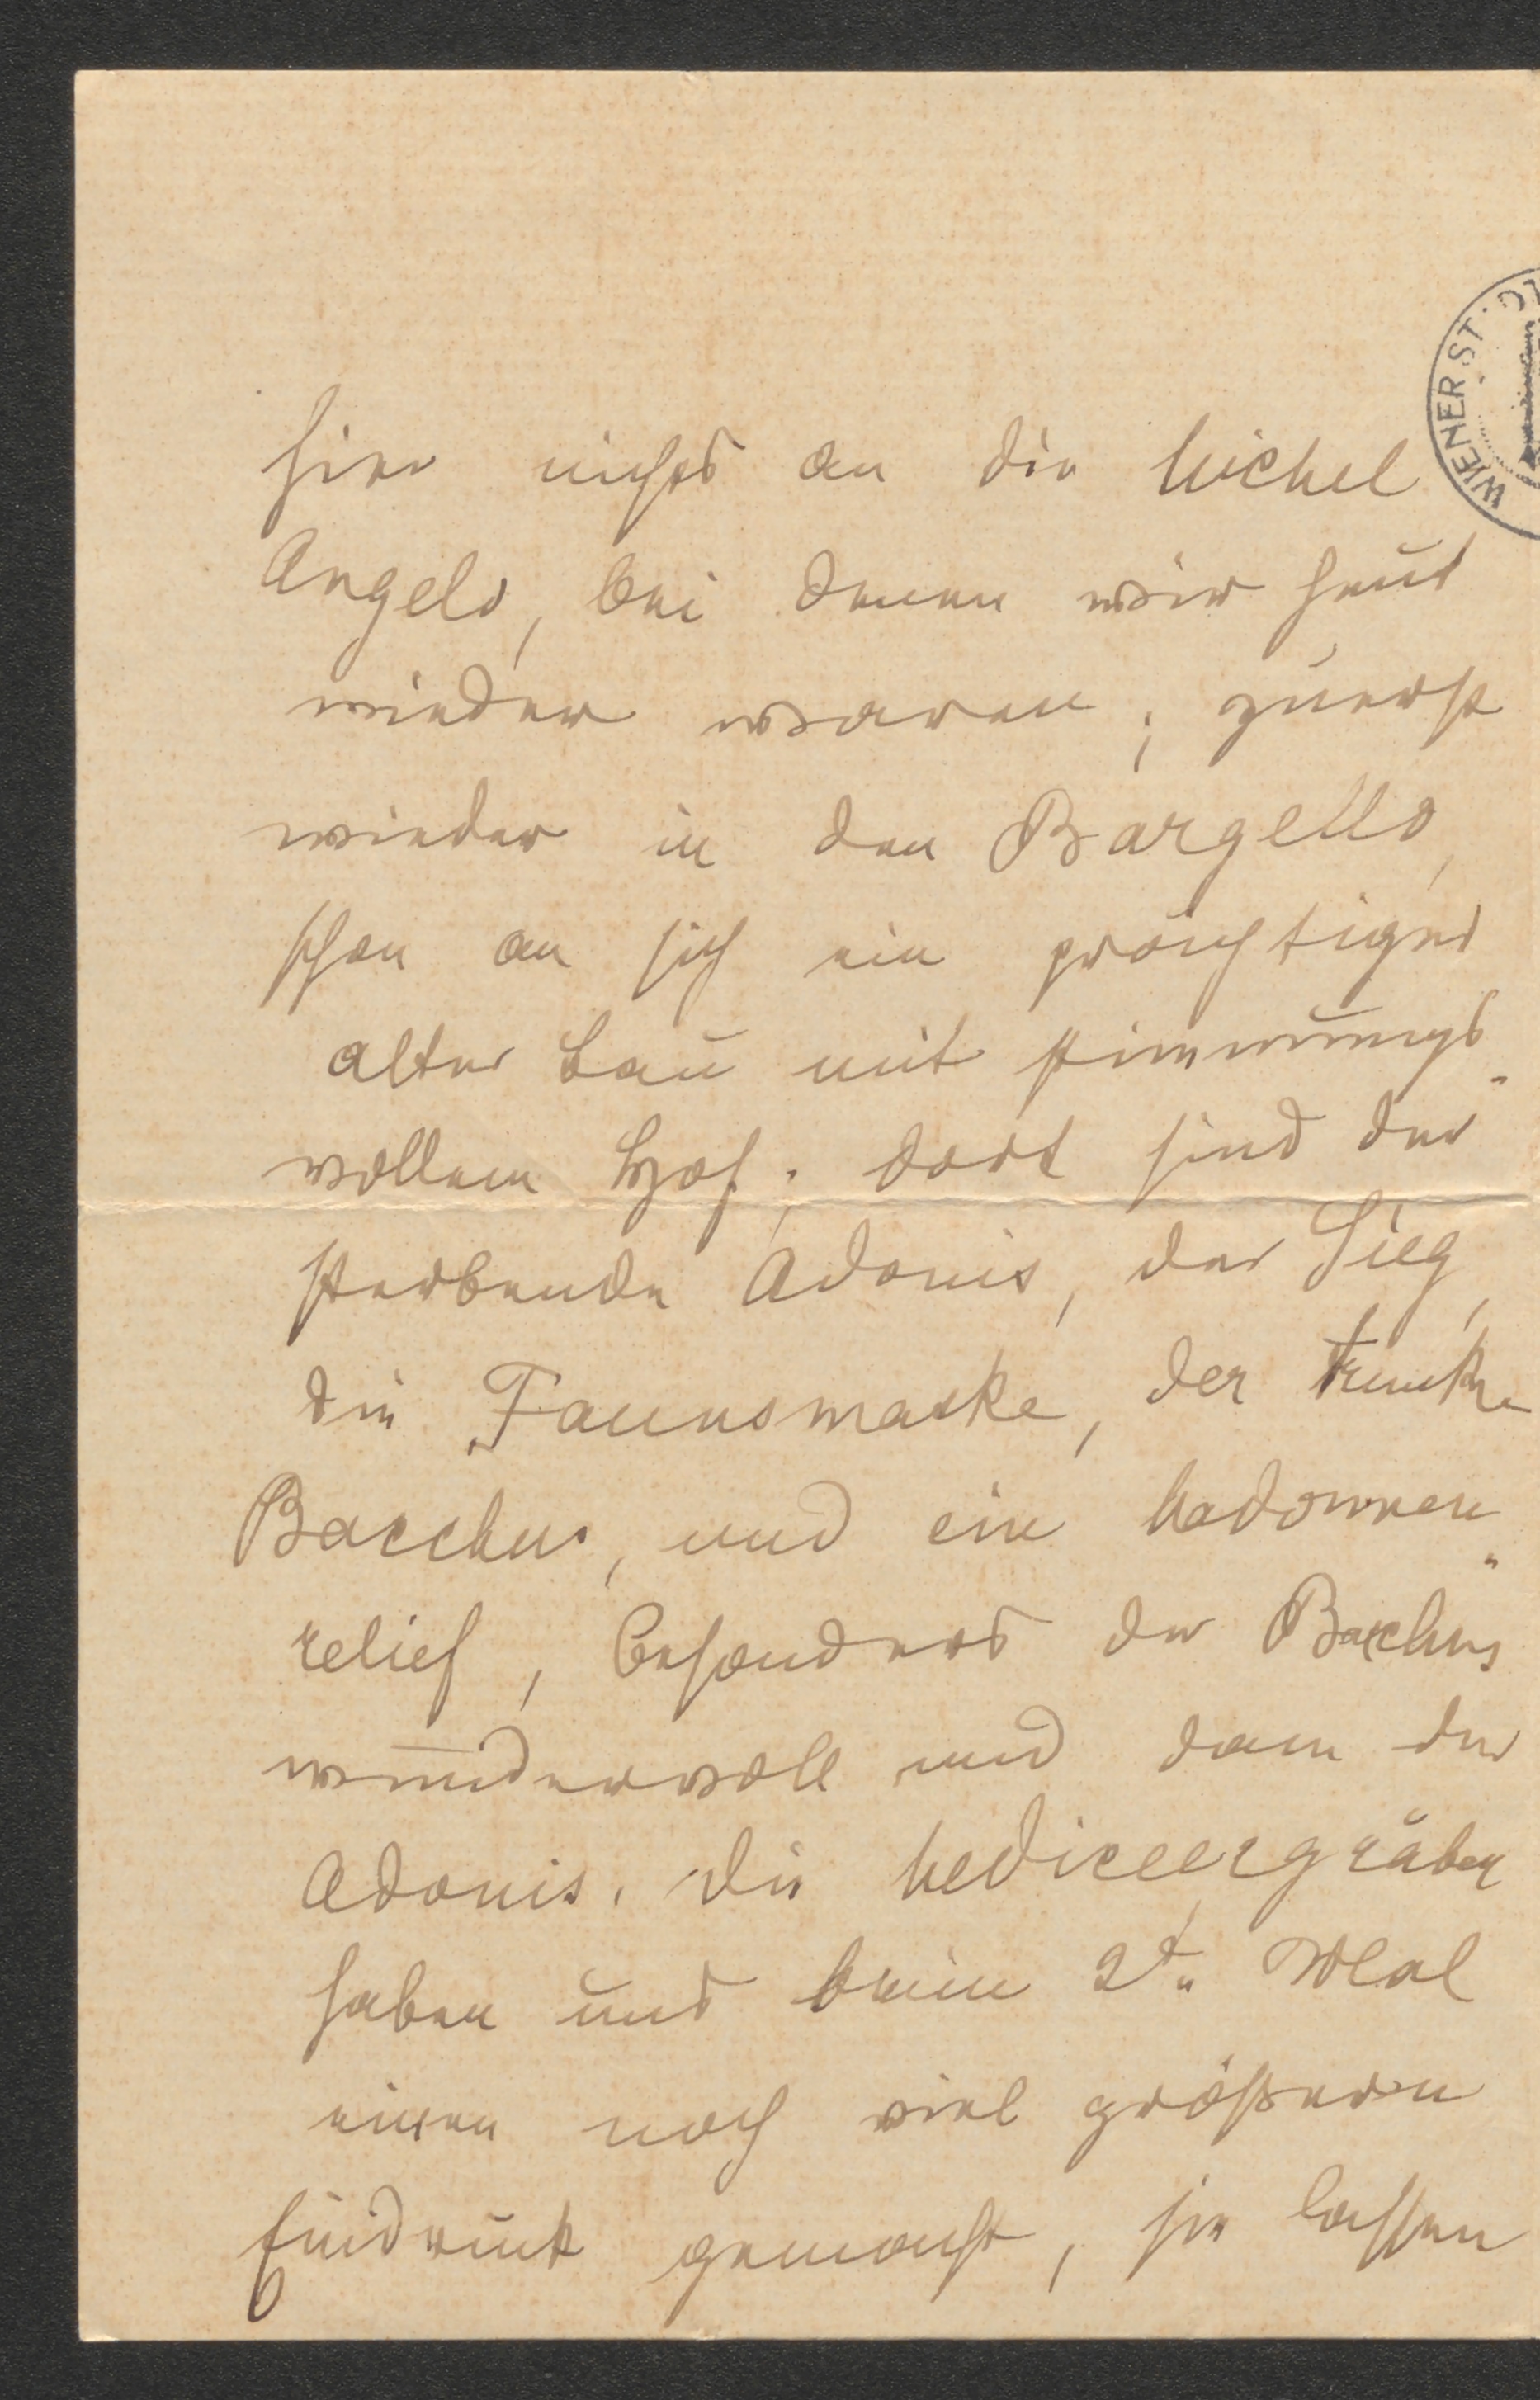 hier nichts an die Michel
Angelo, bei denen wir heut
wieder waren; zuerst
wieder in den Bargello,
schon an sich ein prächtiger
alter Bau mit stimmungs-
vollem Hof; dort sind der
sterbende Adonis, der Sieg,
die Faunsmaske, der trunkne
Bacchus, und ein Madonnen-
relief, besonders der Bacchus
wundervoll und dann der
Adonis. Die Mediceergräber
haben uns beim 2t. Mal
einen noch viel größern
Eindruck gemacht, sie lassen
WIENER ST